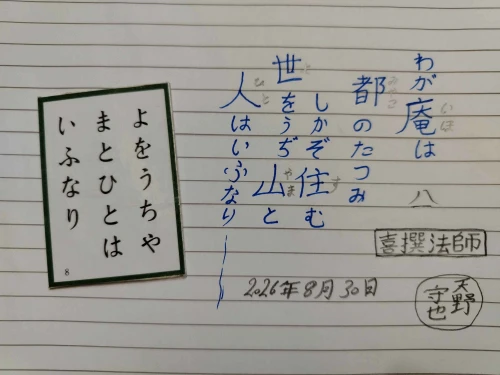 わが庵は 八
いほ
都のたつみ
みやこ
しかぞ住む
す
世をうぢ山と
よ
やま
人はいふなり
ひと
喜撰法師
2026年8月30日
天野
守也
よをうちや
まとひとは
いふなり
8